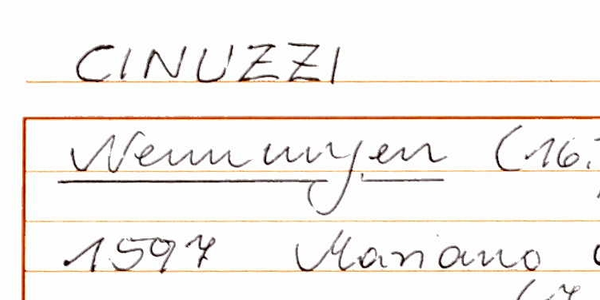 CINUZZI
Nennungen (16
1597 Mariano